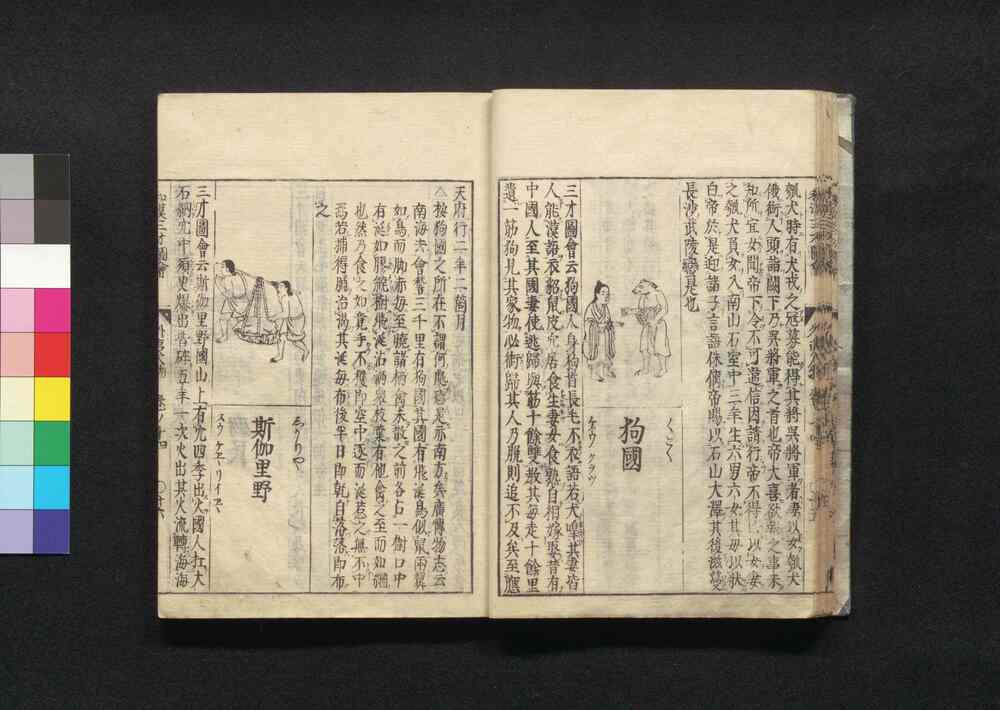 瓠犬時有犬戎之冠募能得其將吳將軍者妻以女瓠犬
俄銜人頭詣闕下乃吳將軍之首也帝大喜
知所宜女聞帝下令不可違信因請行帝不得以女妻
之瓠犬負女入南山石室中三年生六男六女其母以狀
白帝於是迎諸子言語侏㒧帝賜以石山大澤其後滋蔓
長沙武陵蠻是也
くこく
狗國
三才圖會云狗國人身狗首長毛不衣語若犬嘷其妻皆
人能漢語衣貂鼠皮穴居食生妻女食熟自相嫁娶昔有
中國人至其國妻使逃歸與筋十餘雙敎其每走十餘里
遺一筋狗見其家物必銜歸其人乃脫則追不及矣至應
天府行二年二箇月
△按狗國之所在不謂何應是亦南方矣廣博物志云
南海去會稽三千里有狗國其國有飛涎鳥似鼠兩翼
如鳥而脚赤每至曉諸栖禽未散之前各占一樹口中
有涎如膠繞樹飛涎沾洒衆枝葉有他禽之至而如網
也然乃食之如竟午不獲即空中逐而涎惹之無不中
焉若捕得脯治渴其涎每布後半日即乾自落落即布
之
しりや
斯伽里野
三才圖會云斯伽里野國山上有穴四季出火國人扛大
石納穴中須臾爆出皆碎五年一次火出其火流轉海海